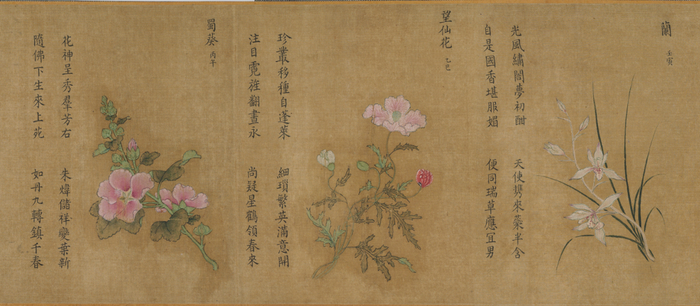 蘭 壬寅
光風繡闥夢初酣 天使携來蕊半含
自是國香堪服媚 便同瑞草應宜男
望仙花 乙巳
珍叢移種自蓬萊 細瑣繁英滿意開
注目霓旌翻晝永 尚疑星鶴領春來
蜀葵 丙午
花神呈秀羣芳右 朱煒儲祥變葉新
隨佛下生來上苑 如丹九轉鎮千春